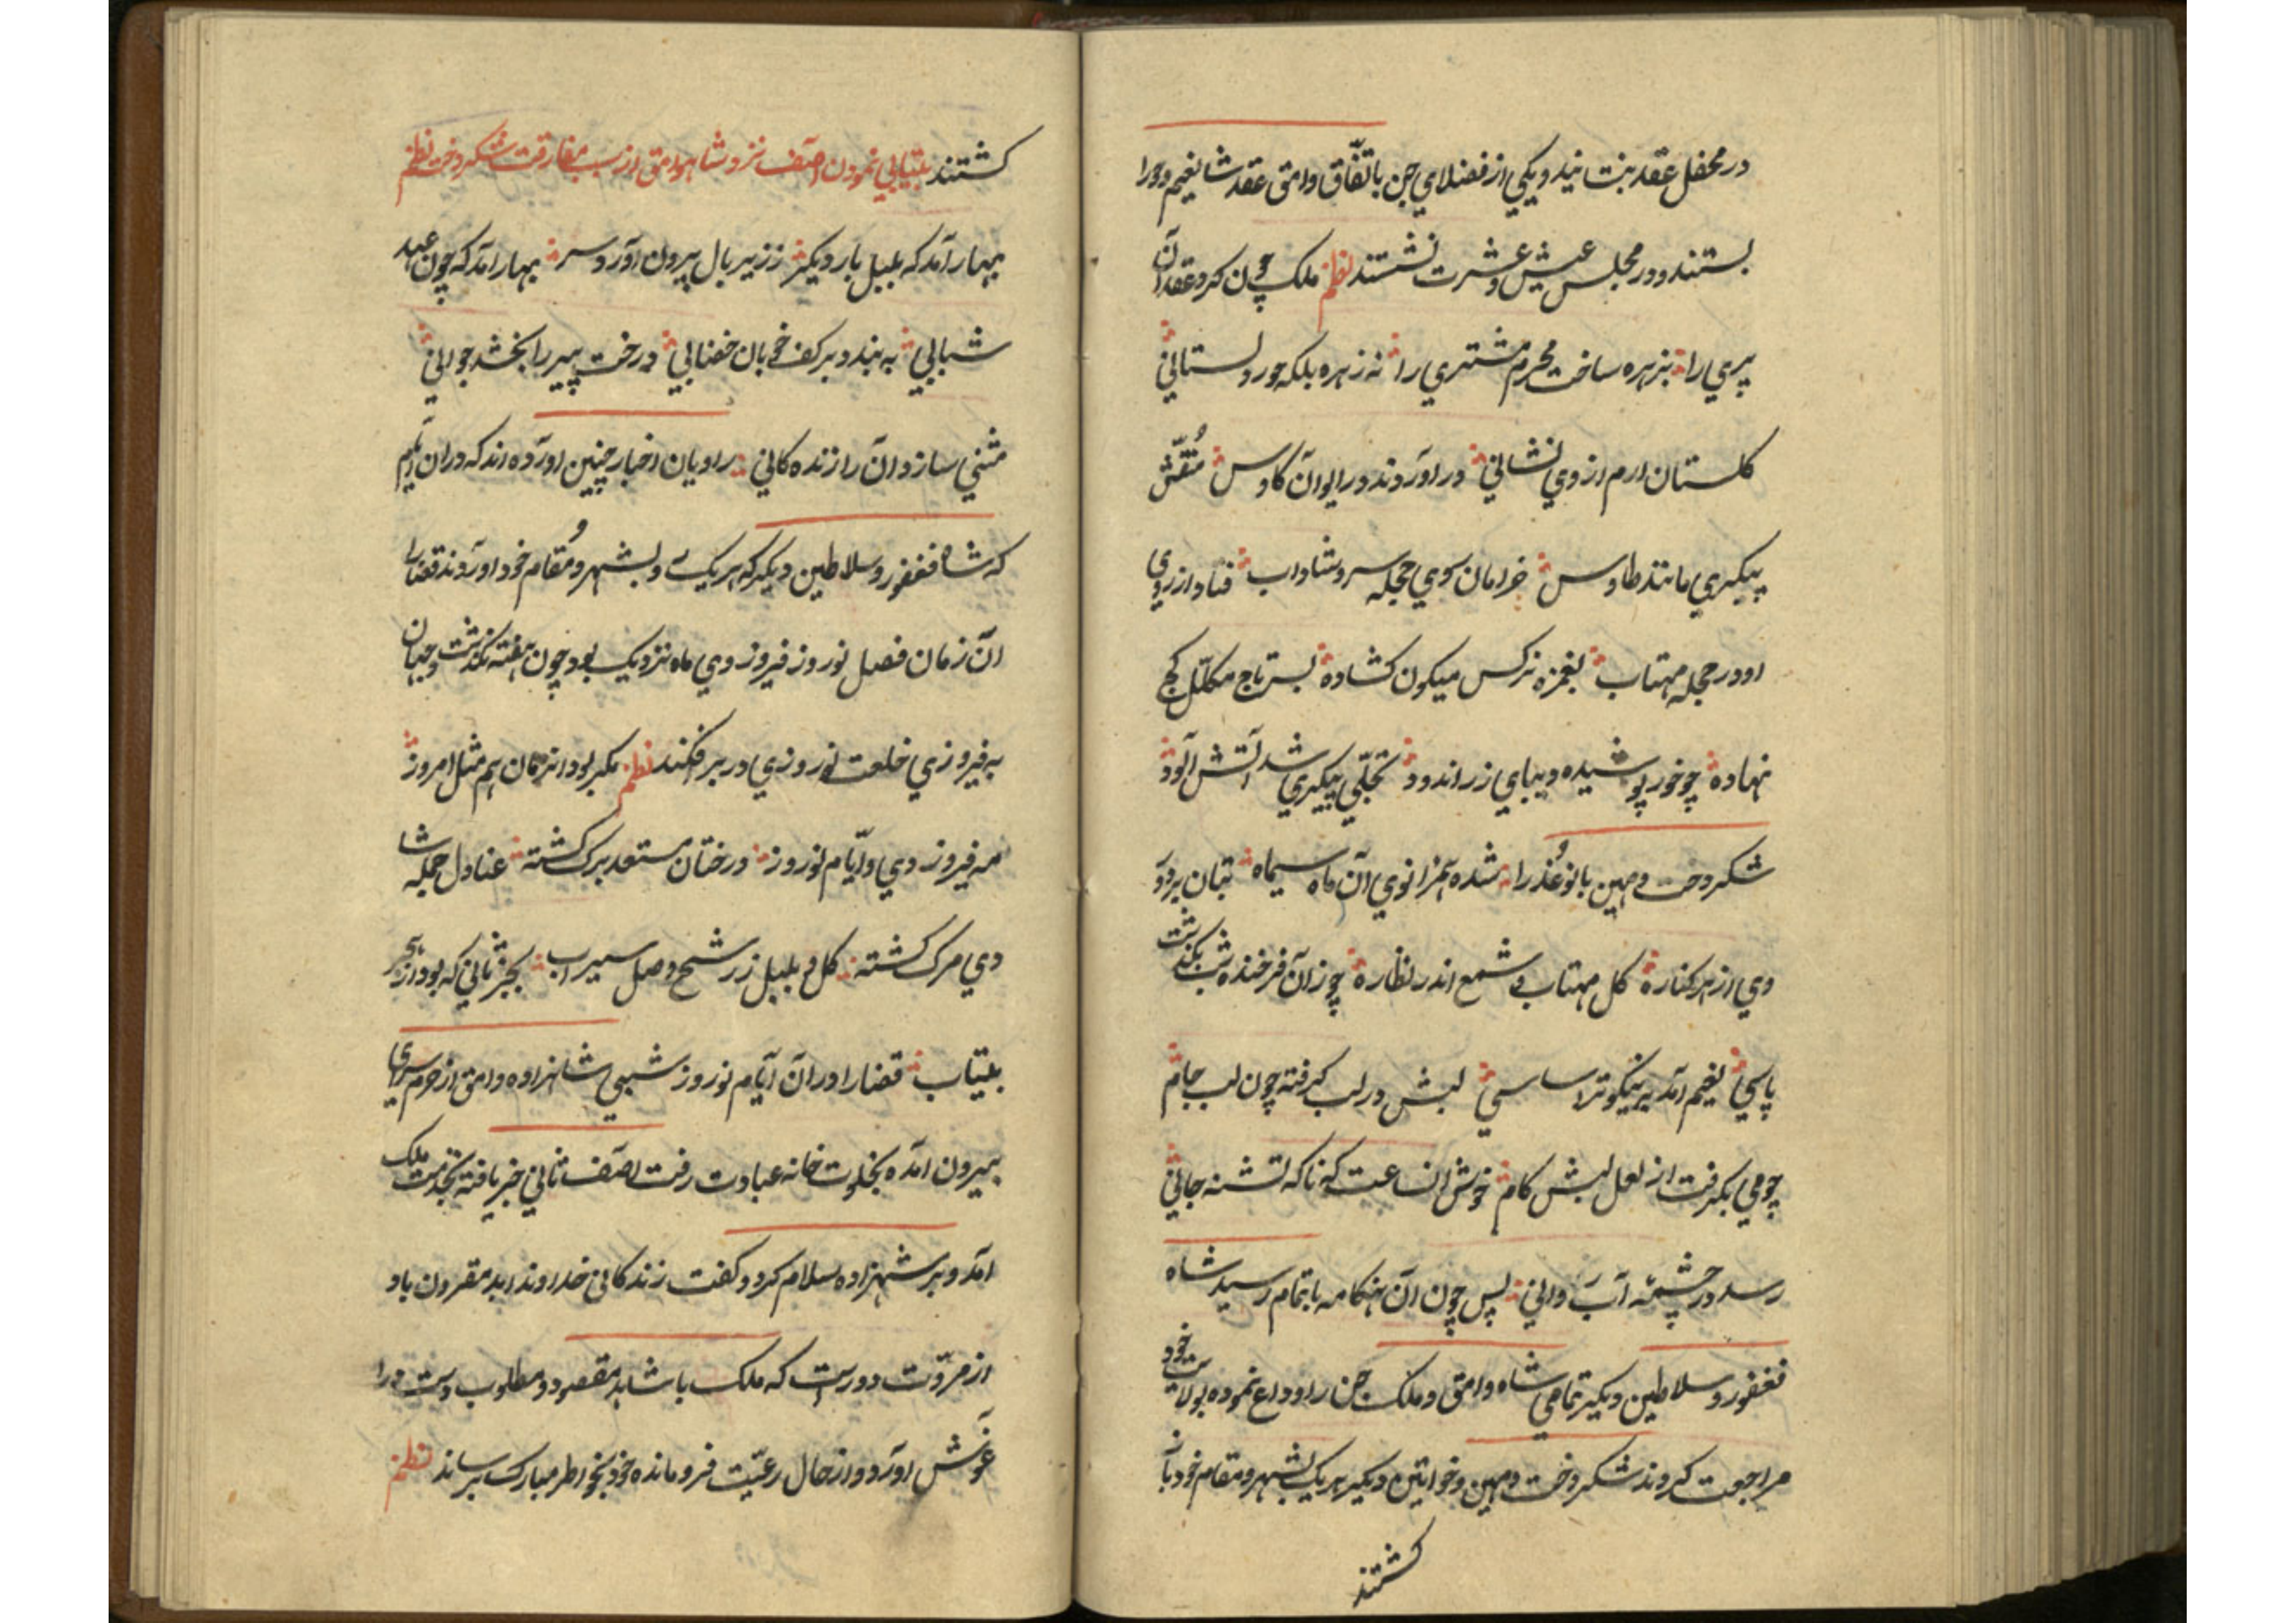 در محفل عقد بنشانیدو یکی از فضلای چن باتّفاق وامق عقد شا نغیم ودورا
بستند ودر مجلس عیش وعشرت نشستند نظم ملک چون کرد عقد آن
پری را بزهره ساخت محرم مشتری را نه زهره بلکه حور دلستانی
کلستان ارم از وی نشانی در اوردند در ایوان کاوس منقّش
پیکری مانند طاوس خرامان سوی حجله سرو شاداب فتاد از روی
او در حجله مهتاب بغمزه نرکس میکون کشاده بسر تاج مکلّل کج
نهاده چو خور پوشیده دیبای زر اندود تجلّی پیکری شد آتش آلود
شکردخت و مهین بانو عُذرا شده همزانوی آن ماه سیماه بتان بردور
وی از هر کناره کل مهتاب و شمع اندر نظاره چو زان فرخنده شب بکذشت
پاسی نغیم آمد بر نیکوتر اساسی لبش در لب کرفته چون لب جام
چو می بکرفت از لعل لبش کام خوش انساعت که ناکه تشنه جانی
رسد در چشمه آب روانی پس چون ان هنکامه باتمام رسید شاه
فغفور وسلاطین دیکیر تمامی شاه وامق و ملک چن را وداع نموده بولایت خود
مراجعت کردند شکردخت و مهین وخواتین دیکیر هر یک بشهر و مقام خود باز
کشتند
کشتند بیتابی نمودن اصف نزد شاه وامق از سبب مفارقت شکردخت نظم
بهار آمد که بلبل بار دیکر ز زیر بال بیرون آورد سر بهار آمد که چون عهد
شبابی به بندد بر کف خوبان خضابی درخت پیر را بخشد جوانی
مثنی سازد آن را زنده کانی راویان اخبار چنین اورده اند که دران ایّام
که شاه فغفور وسلاطین دیکیر که هر یک بشهر و مُقام خود اوردند قضارا
ان زمان فصل نوروز فیروز دی ماه نزدیک بود چون هفته بکذشت وجهان
به فیروزی خلعت نوروزی در بر افکند نظم مکر بود انزمان هم مثل امروز
مه فیروز دی وایّام نوروز درختان مستعد برک کشته عنادل جمله شا
دی مرک کشته کل و بلبل ز رشح وصل سیراب بجز ثانی که بود از هجر
بیتاب قضارا در ان ایّام نوروز شبی شاهزاده وامق از حرم سرای
بیرون امده بخلوت خانه عبادت رفت اصف ثانی خبر یافته بخدمت ملک
امد و بر شهزاده سلام کرد و کفت زندکانی خداوند ابد مقرون باد
از مروّت دورست که ملک با شاهد مقصود و مطلوب دست در ا
غوش اورد و از حال رعیّت فرو مانده خود بخواطر مبارک برساند نظم